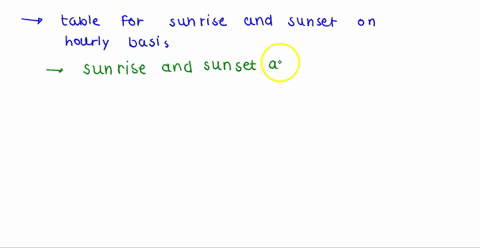 → table for sunrise and sunset on
hourly basis
→ sunrise and sunset a